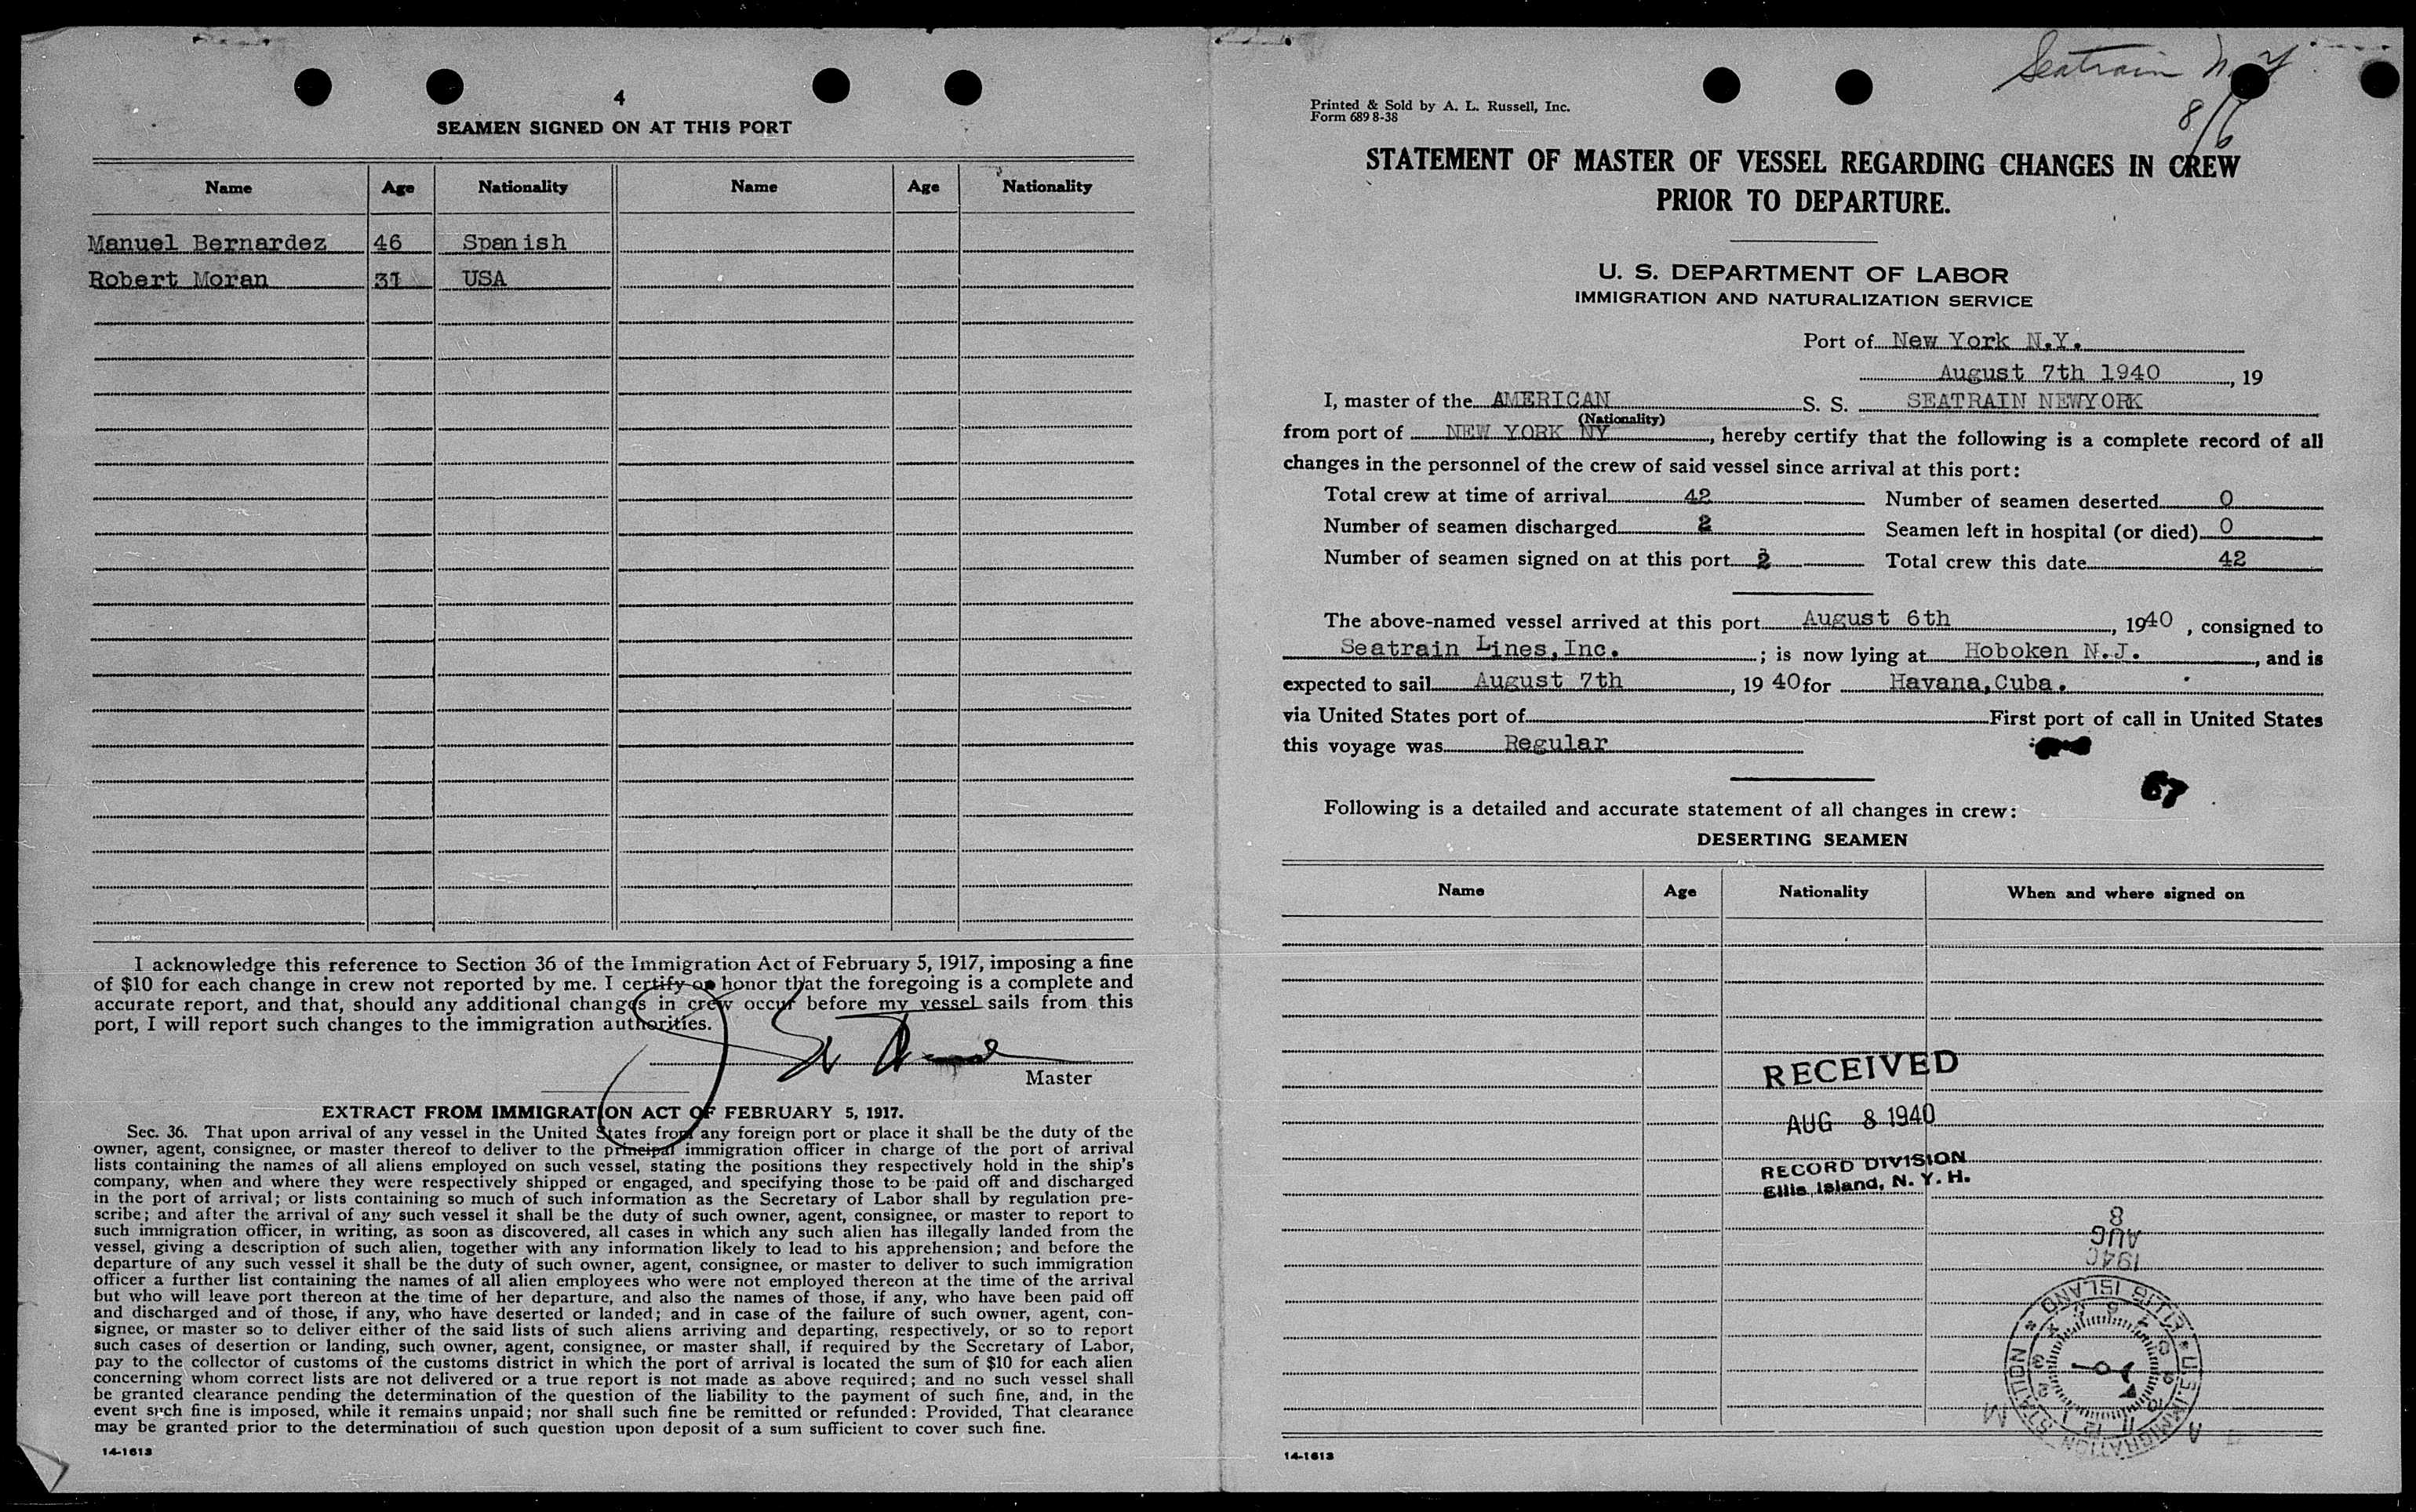 4
SEAMEN SIGNED ON AT THIS PORT
Name Age Nationality Name Age Nationality
Manuel Bernardez 46 Spanish
Robert Moran 31 USA
I acknowledge this reference to Section 36 of the Immigration Act of February 5, 1917, imposing a fine
of $10 for each change in crew not reported by me. I certify on honor that the foregoing is a complete and
accurate report, and that, should any additional changes in crew occur before my vessel sails from this
port, I will report such changes to the immigration authorities.
Master
EXTRACT FROM IMMIGRATION ACT OF FEBRUARY 5, 1917.
Sec. 36. That upon arrival of any vessel in the United States from any foreign port or place it shall be the duty of the
owner, agent, consignee, or master thereof to deliver to the principal immigration officer in charge of the port of arrival
lists containing the names of all aliens employed on such vessel, stating the positions they respectively hold in the ship's
company, when and where they were respectively shipped or engaged, and specifying those to be paid off and discharged
in the port of arrival; or lists containing so much of such information as the Secretary of Labor shall by regulation pre-
scribe; and after the arrival of any such vessel it shall be the duty of such owner, agent, consignee, or master to report to
such immigration officer, in writing, as soon as discovered, all cases in which any such alien has illegally landed from the
vessel, giving a description of such alien, together with any information likely to lead to his apprehension; and before the
departure of any such vessel it shall be the duty of such owner, agent, consignee, or master to deliver to such immigration
officer a further list containing the names of all alien employees who were not employed thereon at the time of the arrival
but who will leave port thereon at the time of her departure, and also the names of those, if any, who have been paid off
and discharged and of those, if any, who have deserted or landed; and in case of the failure of such owner, agent, con-
signee, or master so to deliver either of the said lists of such aliens arriving and departing, respectively, or so to report
such cases of desertion or landing, such owner, agent, consignee, or master shall, if required by the Secretary of Labor,
pay to the collector of customs of the customs district in which the port of arrival is located the sum of $10 for each alien
concerning whom correct lists are not delivered or a true report is not made as above required; and no such vessel shall
be granted clearance pending the determination of the question of the liability to the payment of such fine, and, in the
event such fine is imposed, while it remains unpaid; nor shall such fine be remitted or refunded: Provided, That clearance
may be granted prior to the determination of such question upon deposit of a sum sufficient to cover such fine.
14-1613
Seatrain N.Y
8/6
Printed & Sold by A. L. Russell, Inc.
Form 689 8-38
STATEMENT OF MASTER OF VESSEL REGARDING CHANGES IN CREW
PRIOR TO DEPARTURE.
U. S. DEPARTMENT OF LABOR
IMMIGRATION AND NATURALIZATION SERVICE
Port of New York N.Y.
August 7th 1940, 19
I, master of the AMERICAN S. S. SEATRAIN NEWYORK
(Nationality)
from port of NEW YORK NY, hereby certify that the following is a complete record of all
changes in the personnel of the crew of said vessel since arrival at this port:
Total crew at time of arrival 42 Number of seamen deserted 0
Number of seamen discharged 2 Seamen left in hospital (or died) 0
Number of seamen signed on at this port 2 Total crew this date 42
The above-named vessel arrived at this port August 6th, 1940, consigned to
Seatrain Lines,Inc.; is now lying at Hoboken N.J., and is
expected to sail August 7th, 19 40 for Havana,Cuba.
via United States port of First port of call in United States
this voyage was Regular
67
Following is a detailed and accurate statement of all changes in crew:
DESERTING SEAMEN
Name Age Nationality When and where signed on
RECEIVED
AUG 8 1940
RECORD DIVISION
Ellis Island, N. Y. H.
8
AUG
1940
U.S. IMMIGRATION STATION * ELLIS ISLAND *
14-1613